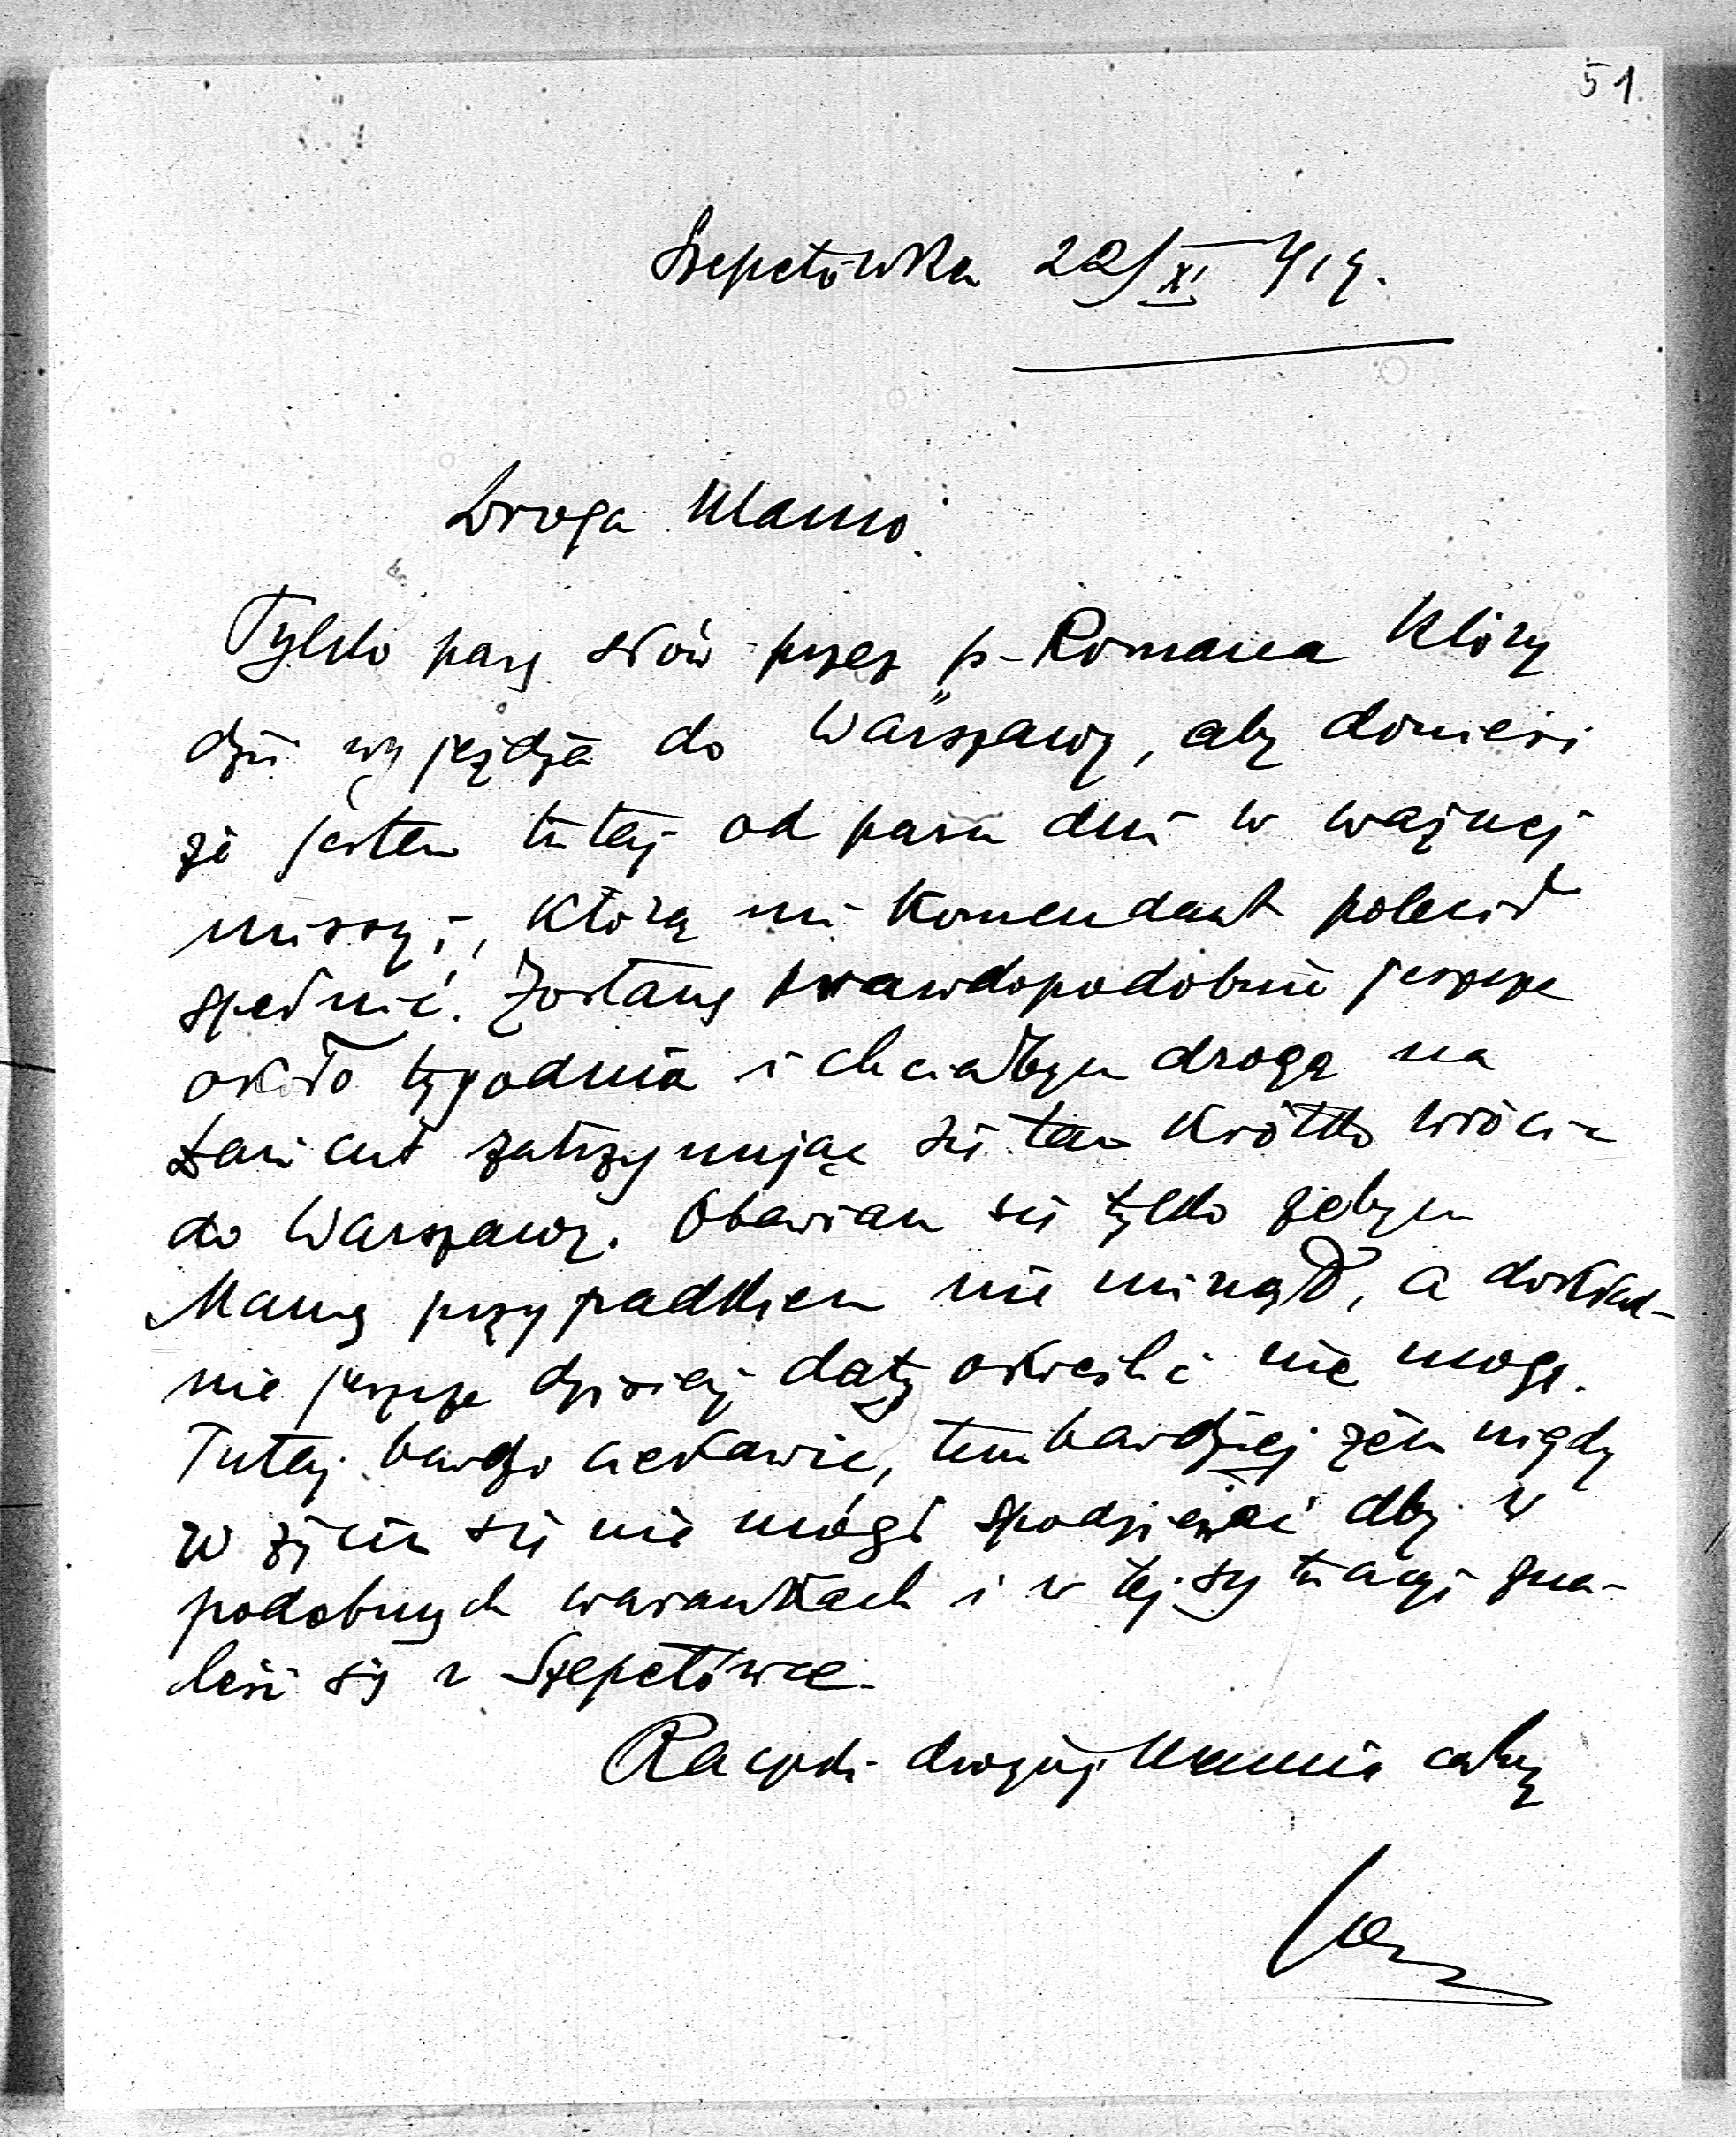 51.
Szepetówka 22/XI 919.
Droga Mamo.
Tylko parę słów przez p. Romana który
dziś wyjeżdża do Warszawy, aby donieść
że jestem tutaj od paru dni w ważnej
missyi, którą mi Komendant polecił
spełnić. Zostanę prawdopodobnie jeszcze
około tygodnia i chciałbym drogą na
Łańcut zatrzymując się tam krótko wrócić
do Warszawy. Obawiam się tylko żebym
Mamę przypadkiem nie minął, a dokład-
nie jeszcze dzisiaj daty określić nie mogę.
Tutaj bardzo ciekawie, tembardziej żem nigdy
w życiu się nie mógł spodziewać aby w
podobnych warunkach i w tej sytuacyi zna-
leść się w Szepetówce.
Rączki drogiej Mamie całuję